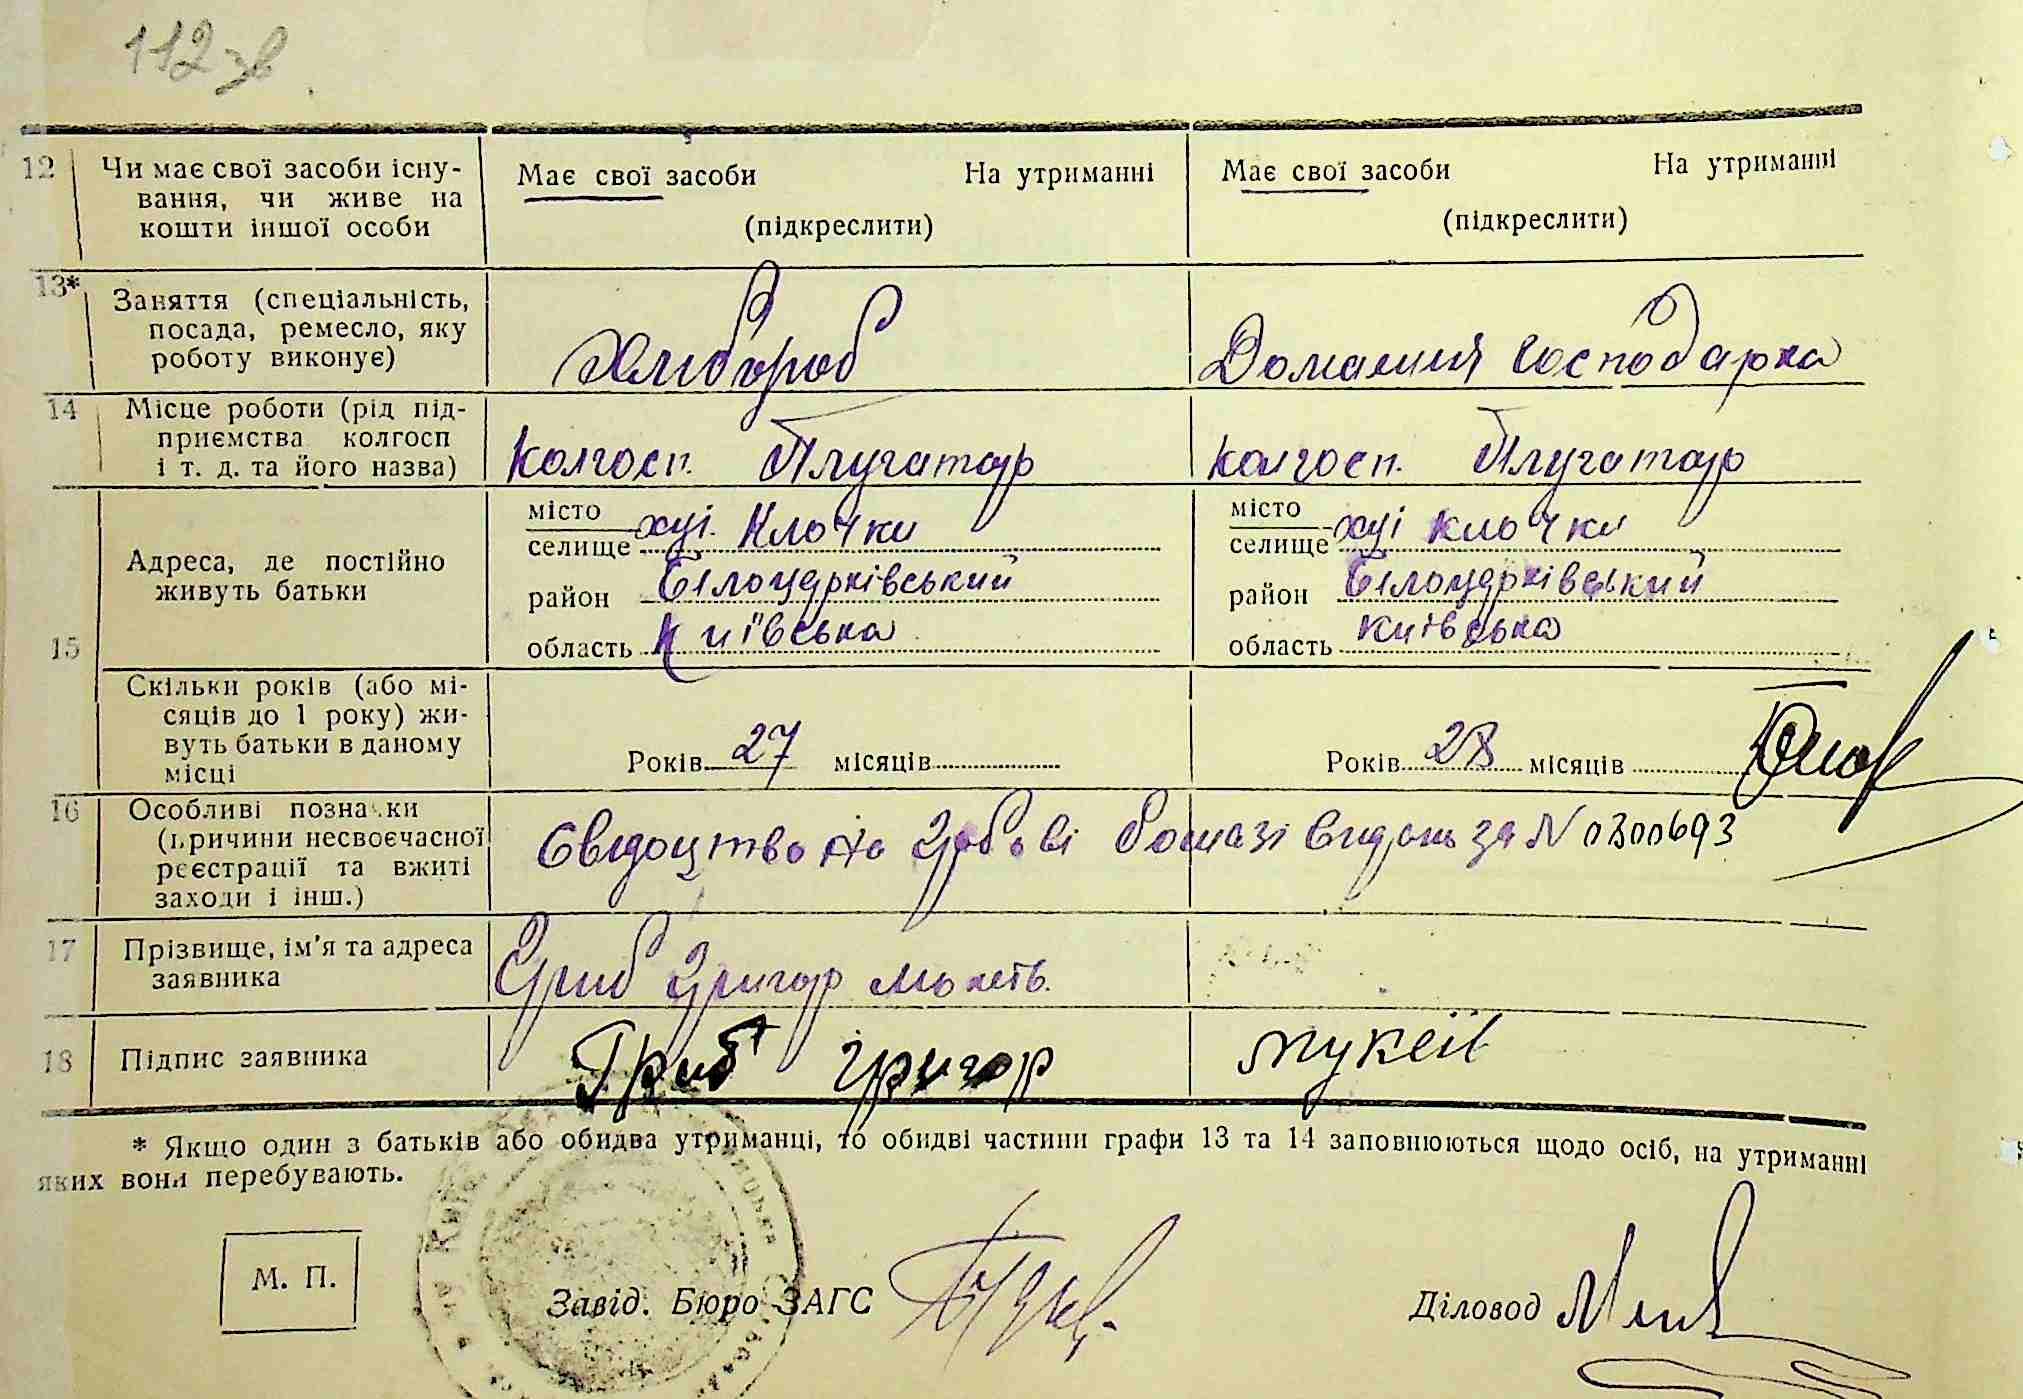 112 зв
12 Чи має свої засоби існу- Має свої засоби На утриманні Має свої засоби На утриманні
вання, чи живе на
кошти іншої особи (підкреслити) (підкреслити)
13* Заняття (спеціальність,
посада, ремесло, яку
роботу виконує) Хлібороб Домашня господарка
14 Місце роботи (рід під-
приємства колгосп
і т. д. та його назва) Колгосп. Плугатар Колгосп. Плугатар
15 Адреса, де постійно
живуть батьки
місто
селище хуі. Клочки
район Білоцерківський
область Київська
місто
селище хуі Клочки
район Білоцерківський
область Київська
Скільки років (або мі-
сяців до 1 року) жи-
вуть батьки в даному
місці
Років 27 місяців Років 28 місяців
16 Особливі позначки
(причини несвоєчасної
реєстрації та вжиті
заходи і інш.)
Свідоцтво на гербові бомазі видань за N 0300693
17 Прізвище, ім'я та адреса
заявника
Гриб Григор
18 Підпис заявника Гриб Григор
* Якщо один з батьків або обидва утриманці, то обидві частини графи 13 та 14 заповнюються щодо осіб, на утриманні
яких вони перебувають.
М. П.
Завід. Бюро ЗАГС
Діловод